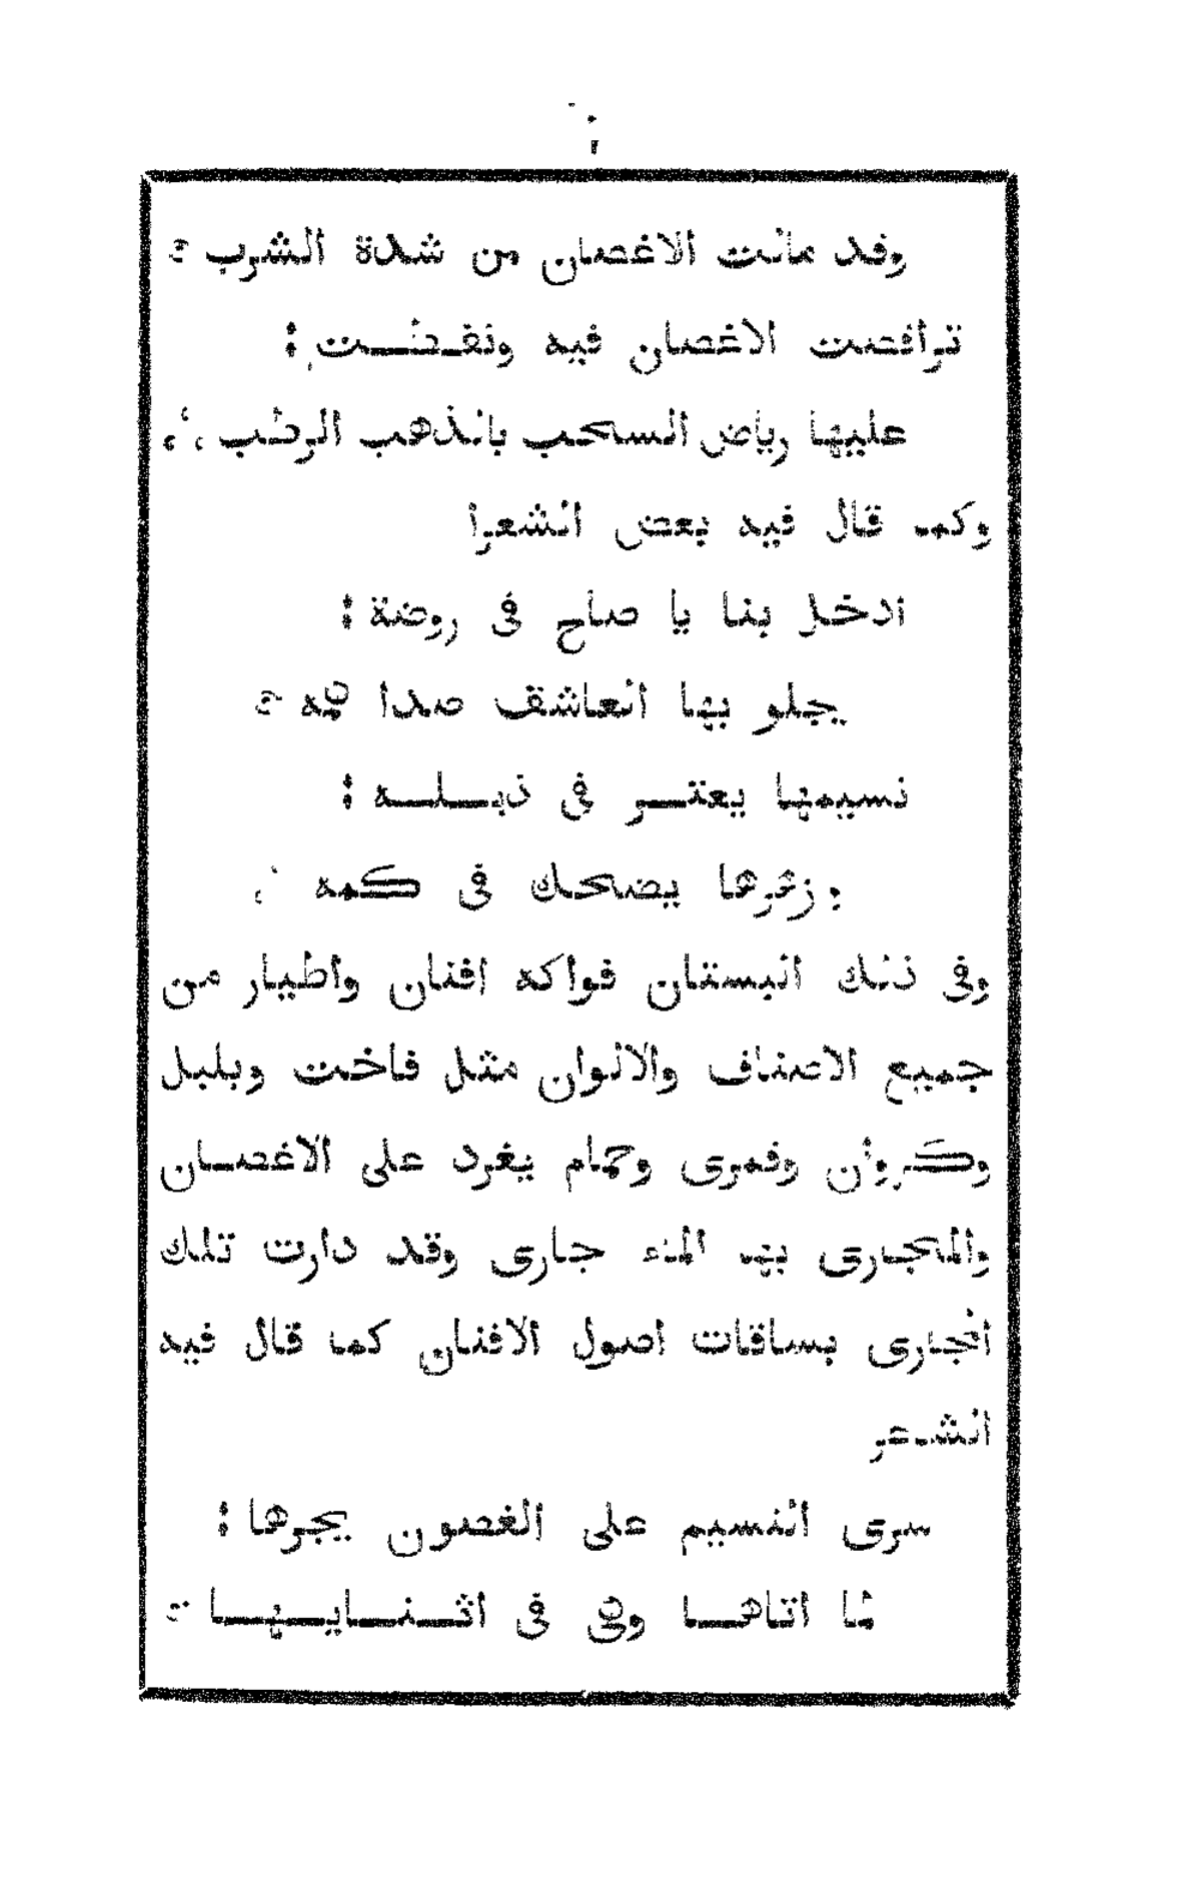 وقد مالت الاغصان من شدة الشرب
تراقصت الاغصان فيه ونقطت :
عليها رياض السحب بالذهب الرطب
وكما قال فيه بعض الشعرا
ادخل بنا يا صاح في روضة :
يجلو بها العاشق صدا همه
نسيمها يعثر في ذيله :
وزهرها يضحك في كمه
وفي ذلك البستان فواكه افنان واطيار من
جميع الاصناف والالوان مثل فاخت وبلبل
وكروان وقمرى وحمام يغرد على الاغصان
والمجارى بها الماء جارى وقد دارت تلك
المجارى بساقات اصول الافنان كما قال فيه
الشاعر
سرى النسيم على الغصون يجرها :
لما اتاها وهي في اثنايها